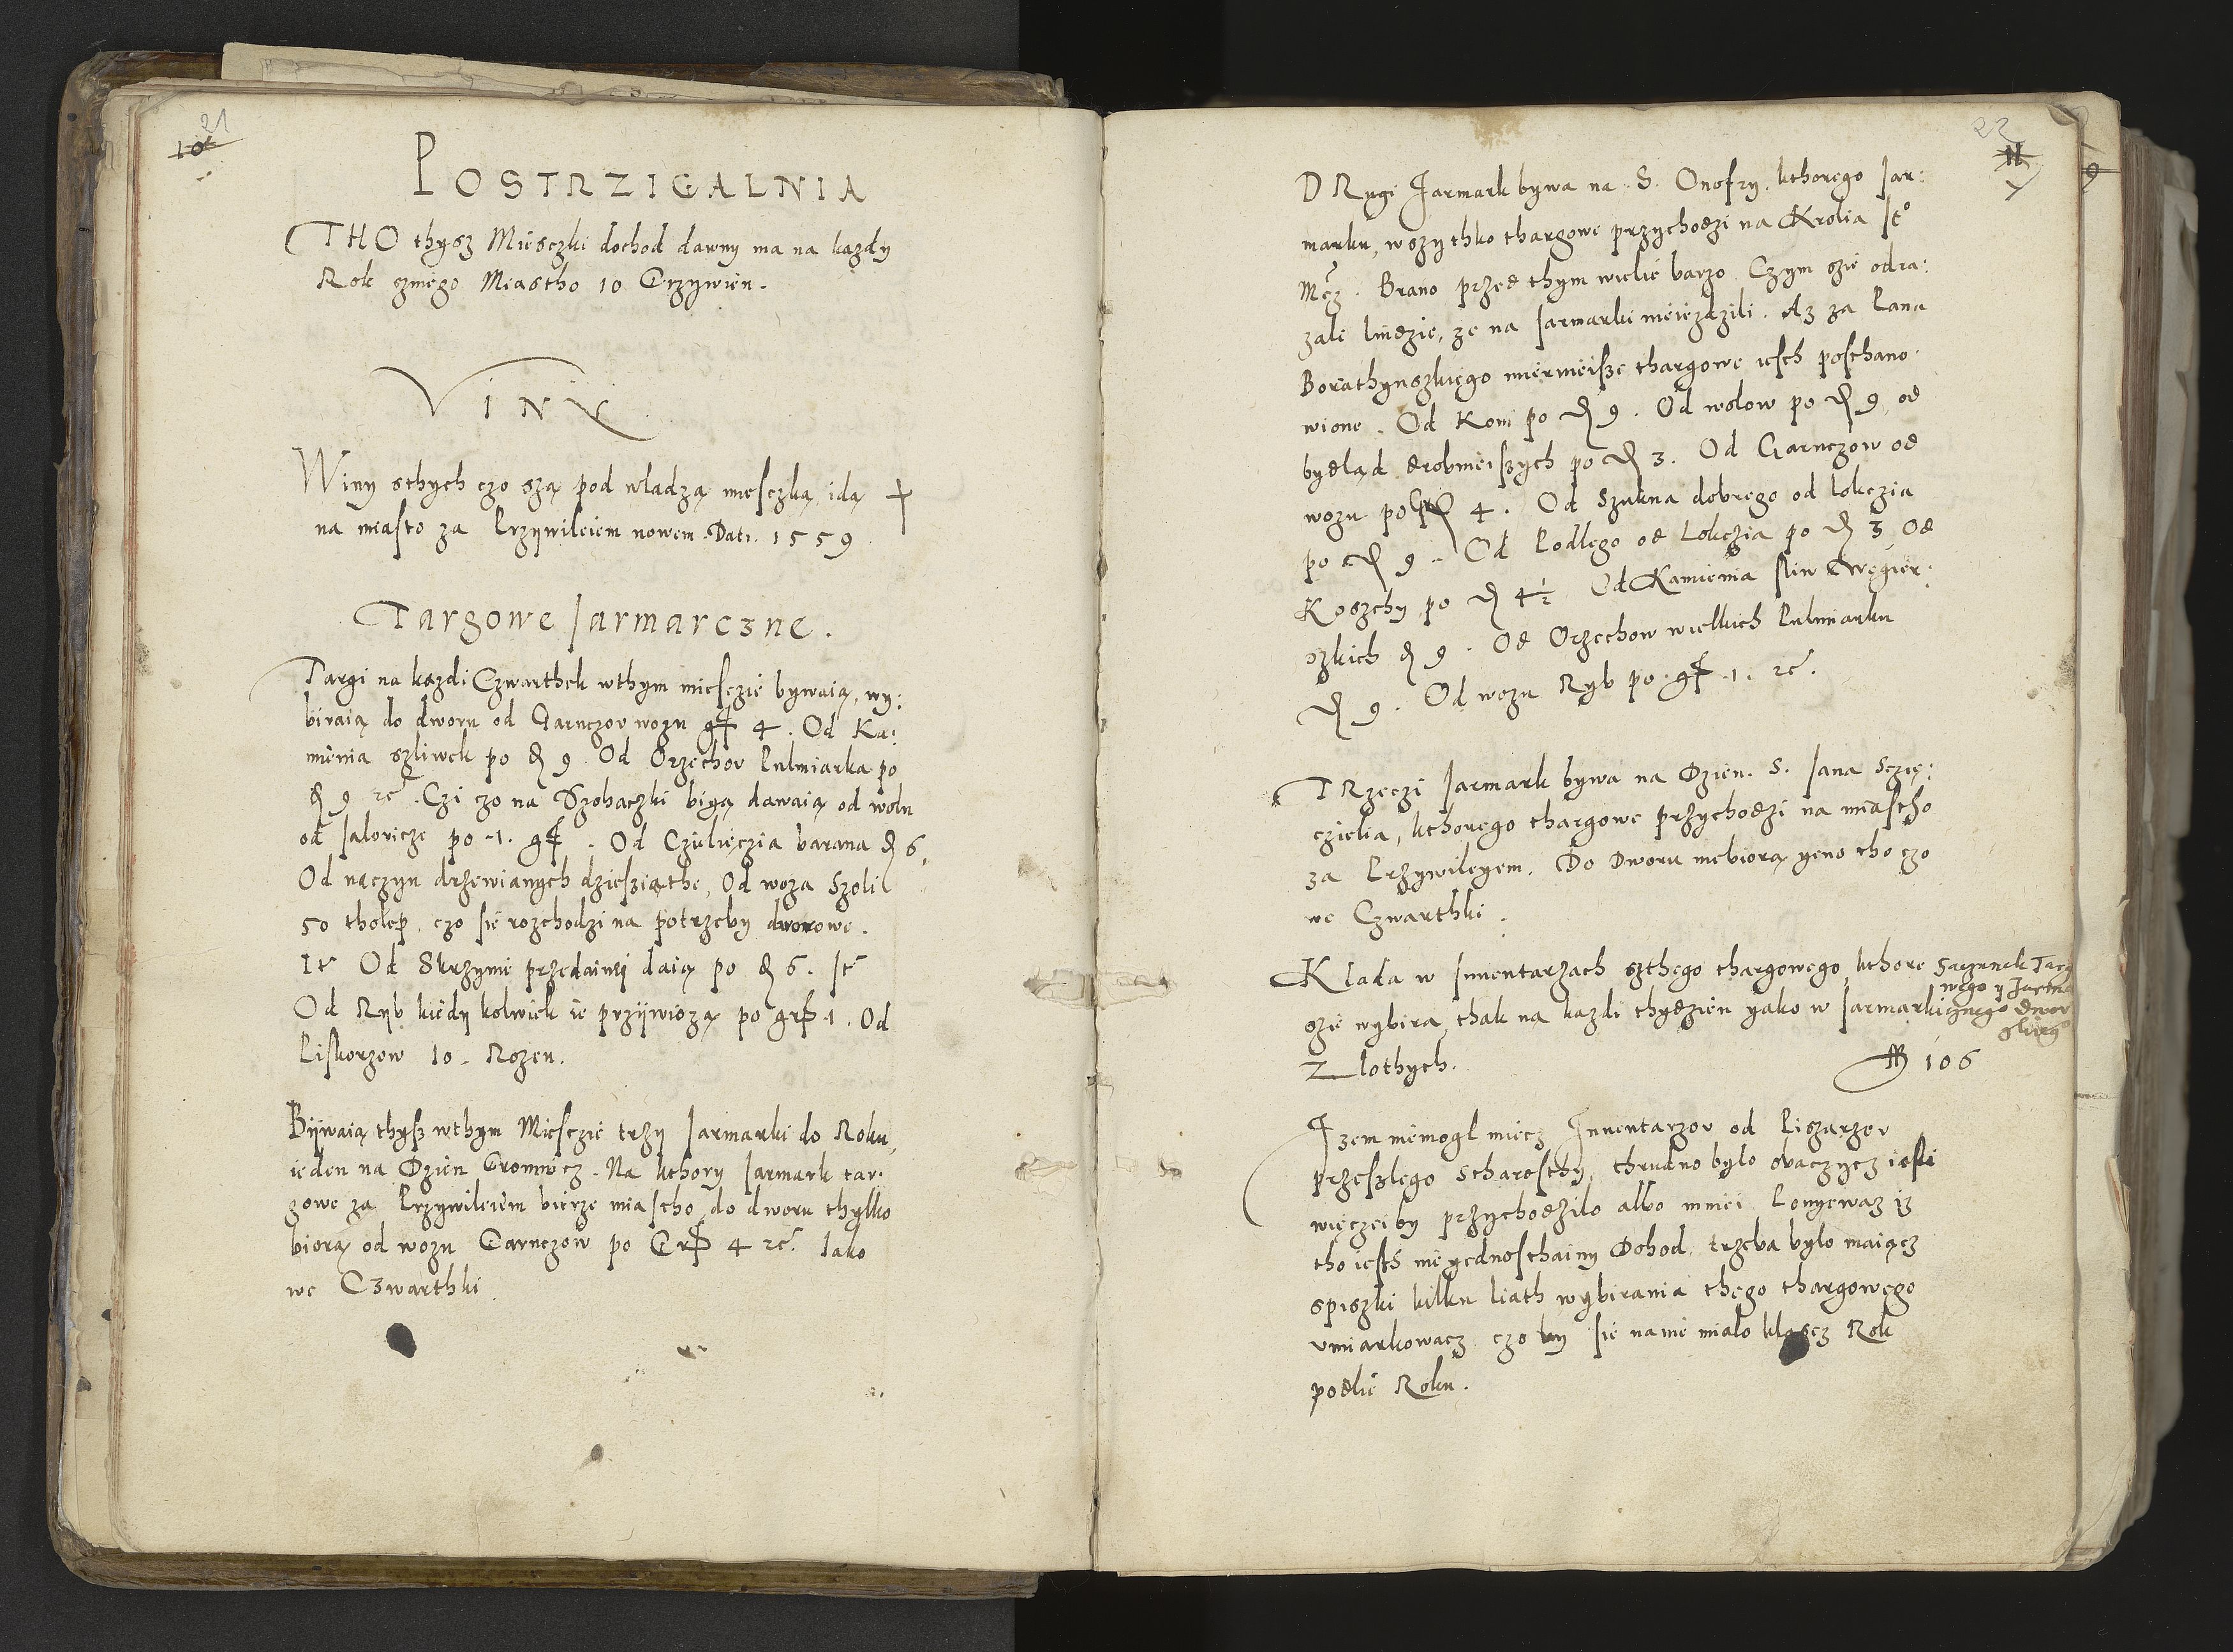 21
10
POSTRZIGALNIA
THO thysz Miesczki dochod dawny ma na kazdy
Rok szniego Miastho 10 Grzywien.
Viny
Winy sthych czo szą pod władzą miesczką, idą
na miasto za Przywileiem nowem. Dati. 1559
Targowe Jarmarczne.
Targi na kazdi Czwarthek wthym miesczie bywaią, wy:
biraią do dworu od Garnczow wozu gr 4. Od Ka:
mienia szliwek po ₰ 9. Od Orzechow Pulmiarka po
₰ 9 etc. Czi czo na Szobaczki bigą dawaią od wolu
od Jalowicze po 1. gr. Od Czielięczia barana ₰ 6,
Od naczyn drzewianych dziesziąthe, Od woza Szoli
50 tholep czo sie rozchodzi na potrzeby dworowe.
It Od Skrzynie przedainej daią po ₰ 6. It
Od Ryb kiedy kolwiek ie przywiozą po grß 1. Od
Piskorzow 10. Rozen.
Bywaią thysz wthym Miesczie trzy Jarmarki do Roku,
ieden na Dzien Gromnicz. Na kthory Jarmark tar:
gowe za Przywileiem bierze miastho, do dworu thylko
biorą od wozu Garnczow po Grß 4 etc. Iako
we Czwarthki.
22
11
DRugi Jarmark bywa na S. Onofry, kthorego Jar:
marku, wszythko thargowe przychodzi na Krolia Je°
Mcz. Brano przed thym wielie barzo. Czym szie odra:
zali liudzie, ze na Jarmarki nieiezdzili. Az za Pana
Borathynszkiego miernieisze thargowe iesth posthano:
wione. Od Koni po ₰ 9. Od wolow po ₰ 9, od
bydląd drobnieiszych po ₰ 3. Od Garnczow od
wozu po Gr 4. Od Szukna dobrego od lokczia
po ₰ 9. Od Podlego od Lokczia po ₰ 3 Od
Koszthy po ₰ 4½ Od Kamienia sliw Węgier:
szkich ₰ 9. Od Orzechow wielkich Pulmiarku
₰ 9. Od wozu Ryb po gr 1. etc.
TRzeczi Jarmark bywa na Dzien. S. Jana Sczię:
czielia, kthorego thargowe przychodzi na miastho
za Przywileyem. Do Dworu niebiorą yeno tho czo
we Czwarthki.
Klada w Inuentarzach szthego thargowego, kthore
szie wybira, thak na kazdi thydzien yako w Jarmarki
Zlothych.
Saczunek Targ
wego y Jarma
cznego dwor
skiego
106
Izem niemogl miecz Inuentarzow od Piszarzow
przeszlego Scharosthy, thrudno bylo obaczycz iesli
więczei by przychodzilo albo mniei. Ponyewaz iz
tho iesth nieyednosthainy Dohod, trzeba bylo maiącz
spiszki kilku liath wybirania thego thargowego
vmiarkowacz czo by sie nanie mialo klascz Rok
podlie Roku.